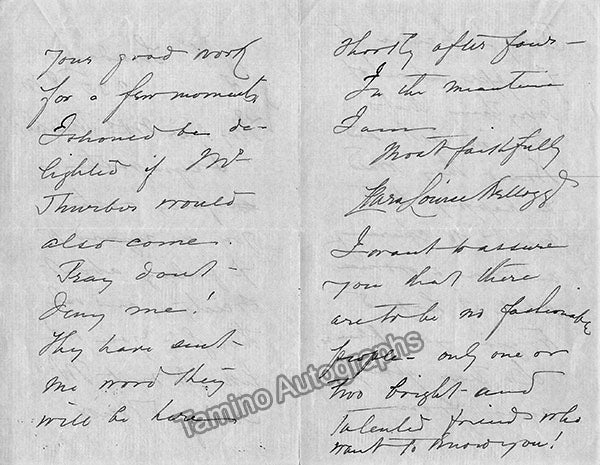 Your good work
for a few moments
I should be de-
lighted if Mr
Thurber would
also come.
Pray don't-
deny me!
They have sent-
me word they
will be here
Shortly after four-
In the meantime
I am
Most faithfully
Clara Louise Kellogg
I want to assure
you that there
are to be no fashionable
people - only one or
two bright - and
talented friends who
want to know you!
Tamino Autographs